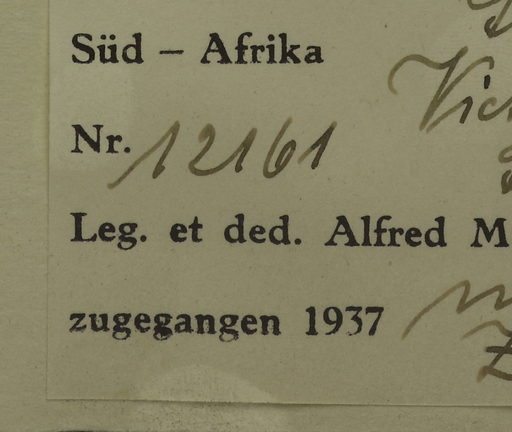 Süd – Afrika
Nr. 12161
Leg. et ded. Alfred M
zugegangen 1937